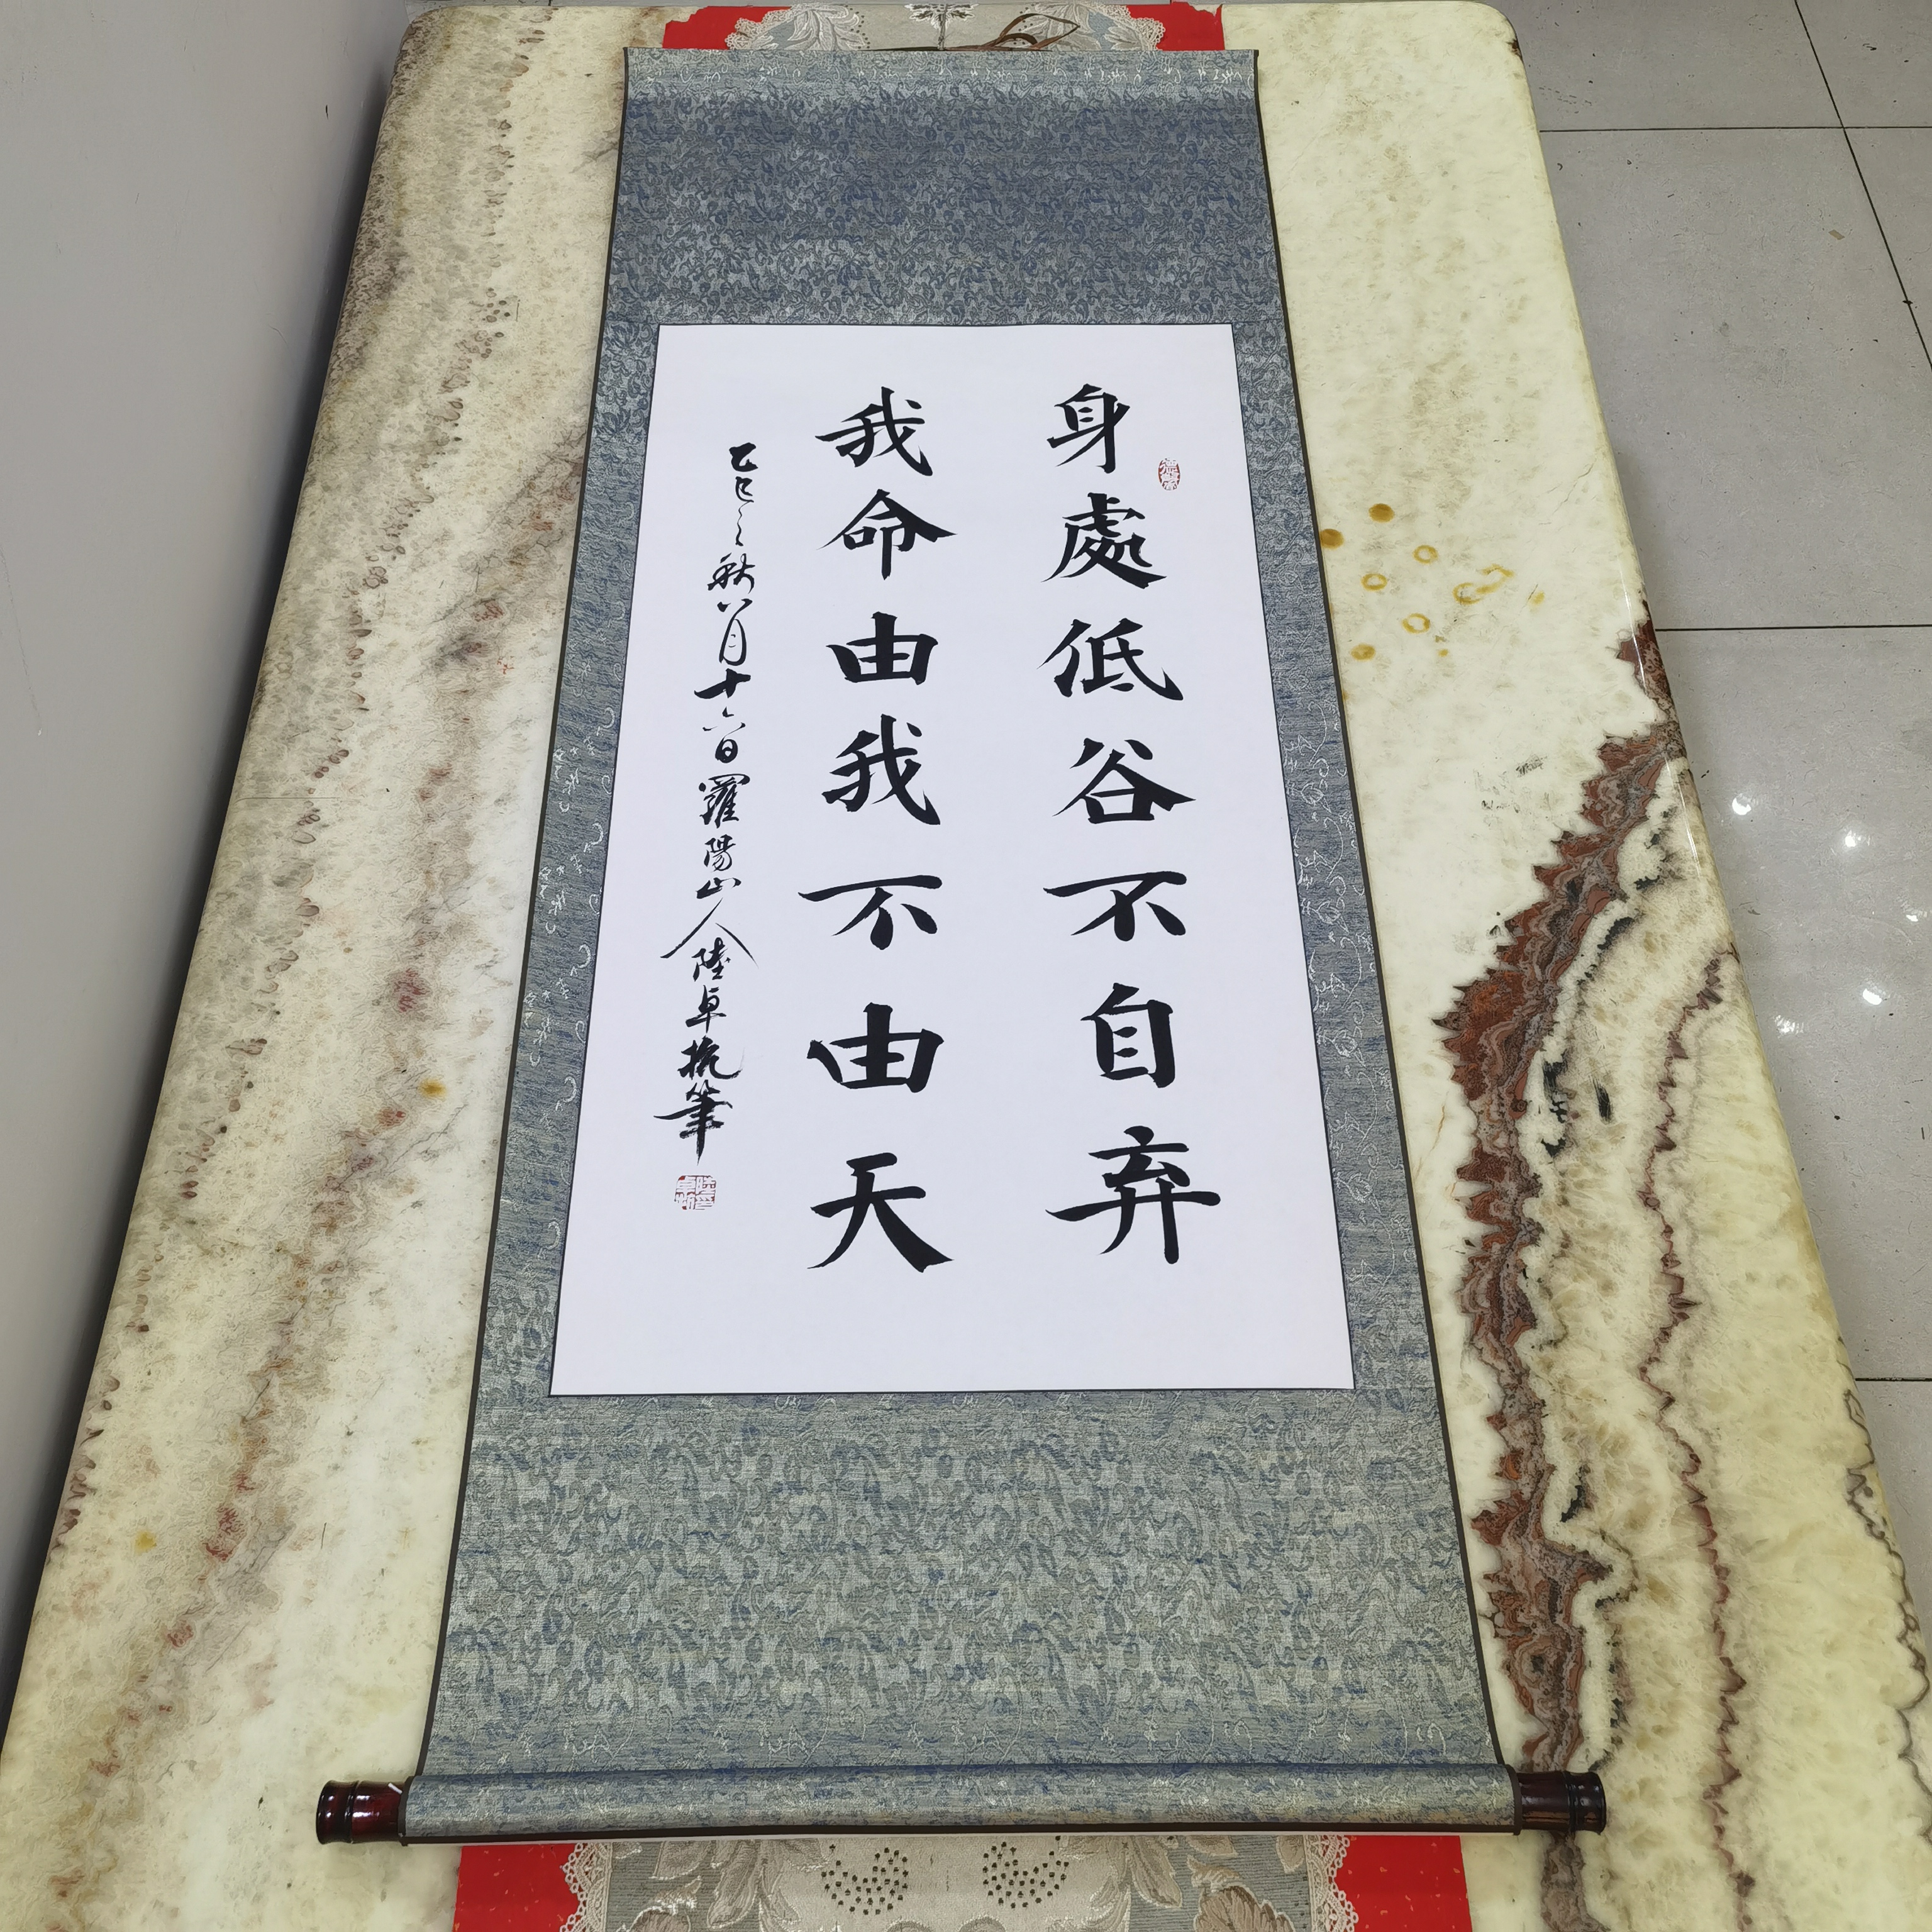 身處低谷不自弃
我命由我不由天
乙巳之秋八月十六日羅陽山人陸卓杭筆